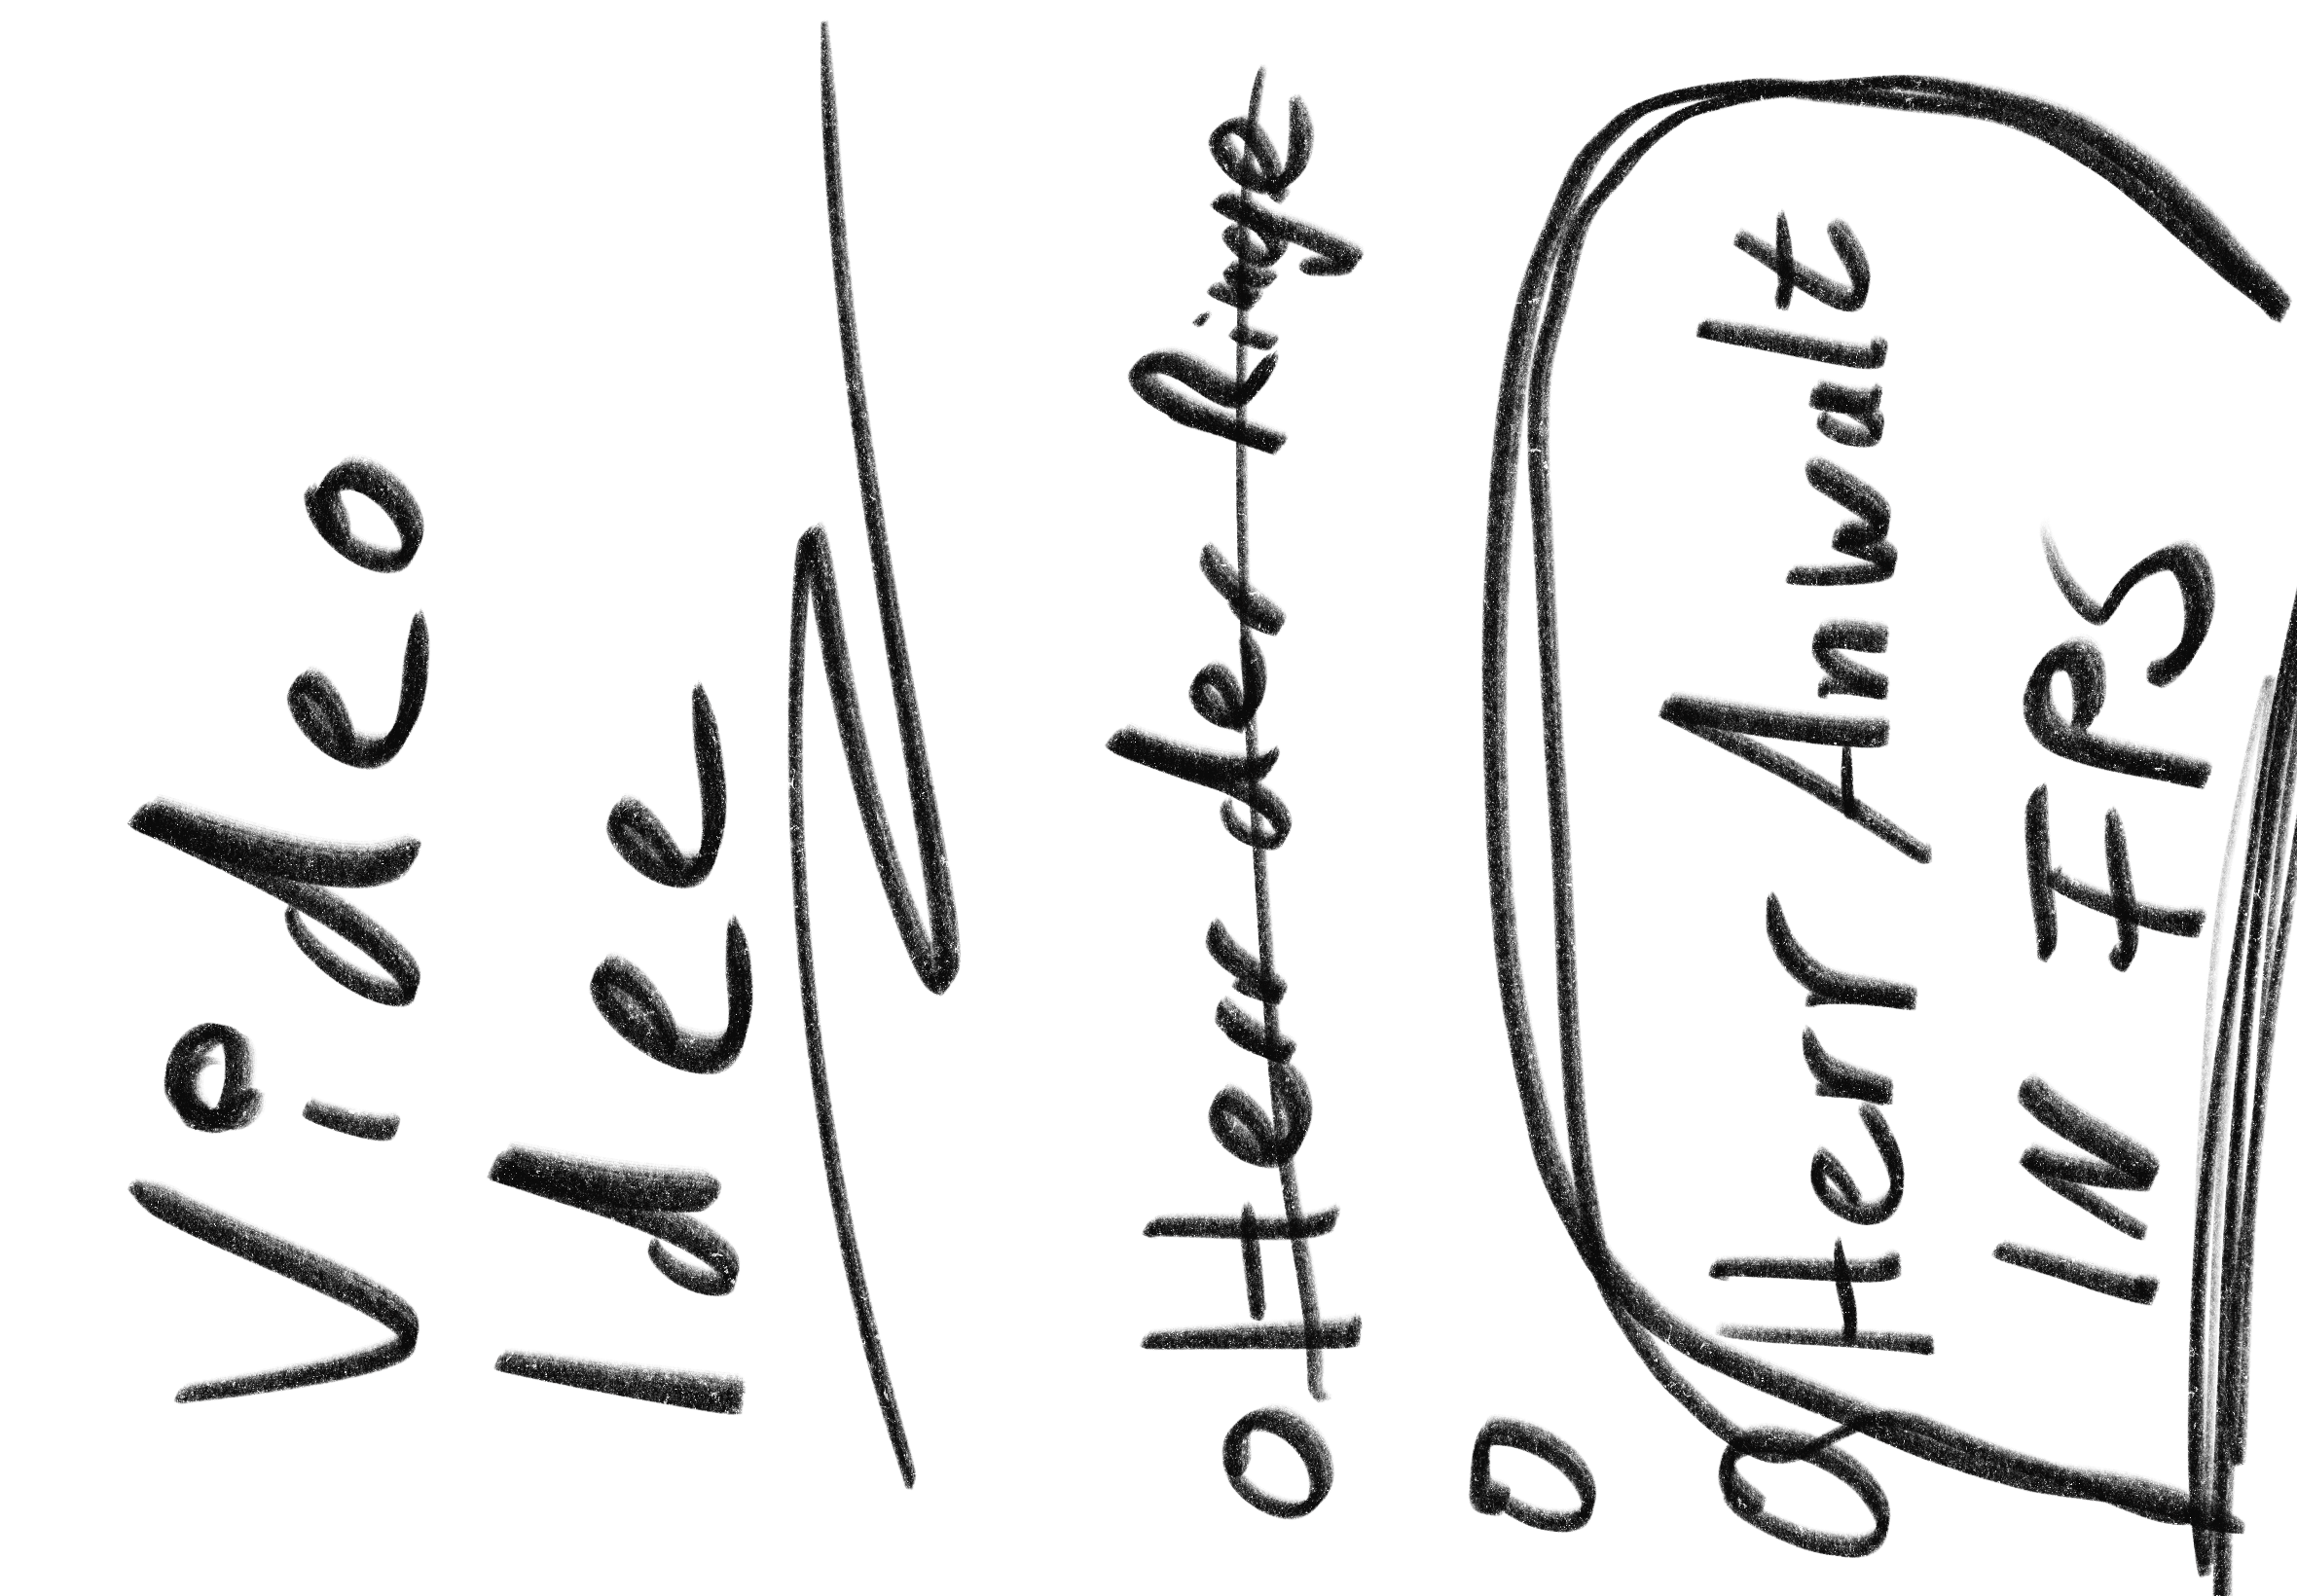 Video
Idee
o Herr der Ringe
o
o Herr Anwalt
IN FPS